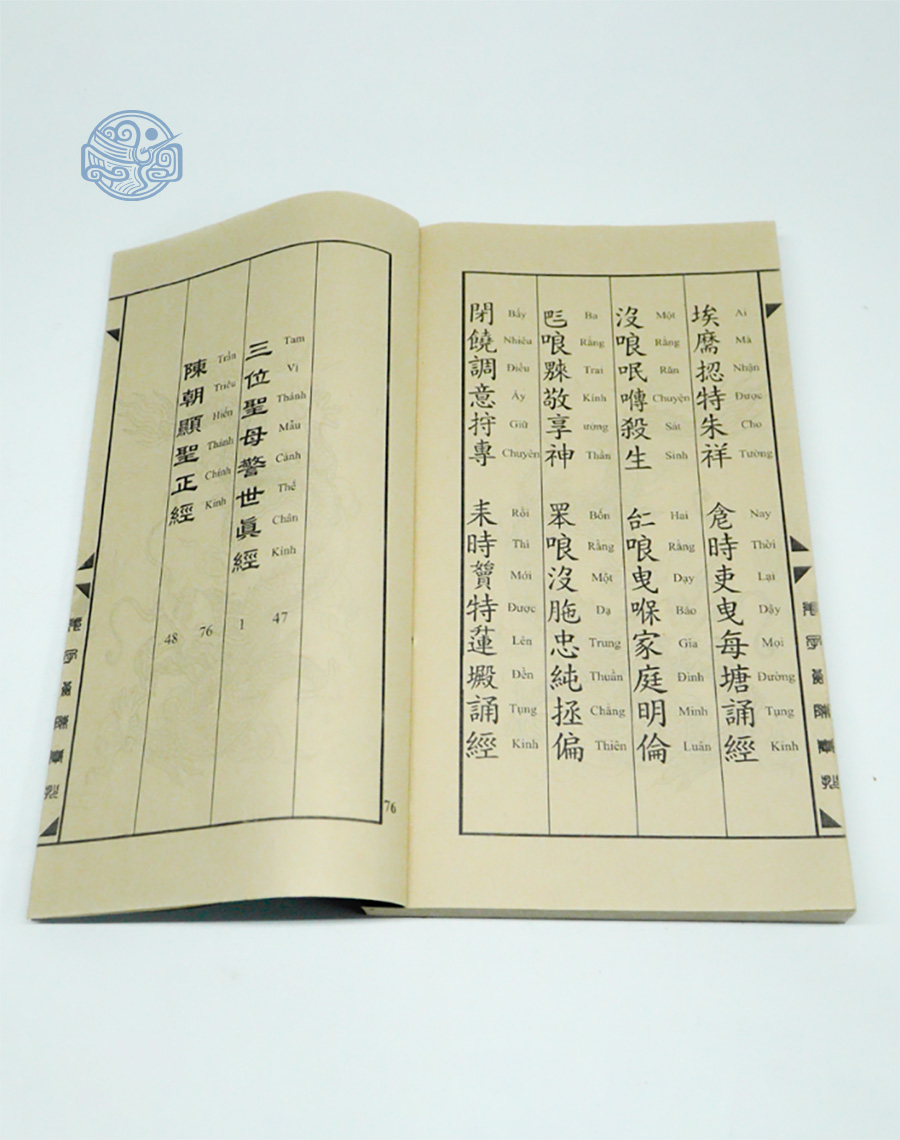 埃特朱祥 時吏曳每塘誦經
Ai Mà Nhận Được Cho Tường Nay Thời Lại Dậy Mọi Đường Tụng Kinh
沒哴呡囀殺生 哴曳㗖家庭明倫
Một Rằng Răn Chuyện Sát Sinh Hai Rằng Dạy Bảo Gia Đình Minh Luân
哴敬享神 哴沒胣忠純拯偏
Ba Rằng Trai Kính ưởng Thần Bốn Rằng Một Dạ Trung Thuần Chẳng Thiên
閉饒調意專 耒時特誦經
Bấy Nhiêu Điều Ấy Giữ Chuyên Rồi Thì Mới Được Lên Đền Tụng Kinh
三位聖母警世眞經 1
Tam Vị Thánh Mẫu Cảnh Thế Chân Kinh 47
陳朝顯聖正經 48
Trần Triều Hiển Thánh Chính Kinh 76
76